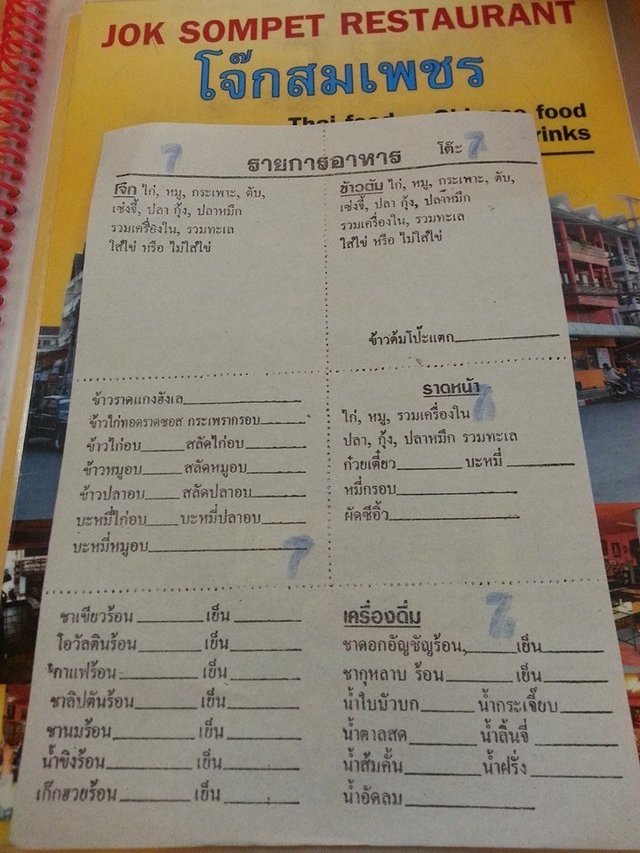 JOK SOMPET RESTAURANT
โจ๊กสมเพชร
Thai food Chinese food
drinks
7 รายการอาหาร โต๊ะ 7
โจ๊ก ไก่, หมู, กระเพาะ, ตับ,
เซ่งจี้, ปลา กุ้ง, ปลาหมึก
รวมเครื่องใน, รวมทะเล
ใส่ไข่ หรือ ไม่ใส่ไข่
ข้าวต้ม ไก่, หมู, กระเพาะ, ตับ,
เซ่งจี้, ปลา กุ้ง, ปลาหมึก
รวมเครื่องใน, รวมทะเล
ใส่ไข่ หรือ ไม่ใส่ไข่
ข้าวต้มโป๊ะแตก
ข้าวราดแกงฮังเล
ข้าวไก่ทอดราดซอส กระเพรากรอบ
ข้าวไก่อบ สลัดไก่อบ
ข้าวหมูอบ สลัดหมูอบ
ข้าวปลาอบ สลัดปลาอบ
บะหมี่ไก่อบ บะหมี่ปลาอบ
บะหมี่หมูอบ 7
ราดหน้า
ไก่, หมู, รวมเครื่องใน 7
ปลา, กุ้ง, ปลาหมึก รวมทะเล
ก๋วยเตี๋ยว บะหมี่
หมี่กรอบ
ผัดซีอิ้ว
ชาเขียวร้อน เย็น
โอวัลตินร้อน เย็น
กาแฟร้อน เย็น
ชาลิปตันร้อน เย็น
ชานมร้อน เย็น
น้ำขิงร้อน เย็น
เก็กฮวยร้อน เย็น
เครื่องดื่ม 7
ชาดอกอัญชัญร้อน, เย็น
ชากุหลาบ ร้อน เย็น
น้ำใบบัวบก น้ำกระเจี๊ยบ
น้ำตาลสด น้ำลิ้นจี่
น้ำส้มคั้น น้ำฝรั่ง
น้ำอัดลม